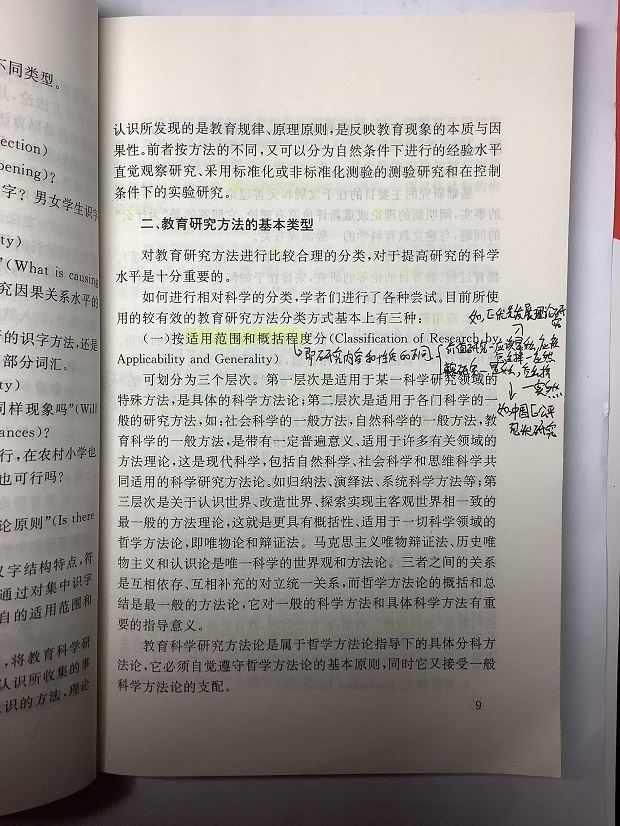 不同类型。
ection)
pening)?
字？男女学生识字
ty)
”(What is causing
究因果关系水平的
的识字方法，还是
部分词汇。
ty)
同样现象吗”(Will
ances)?
行，在农村小学也
也可行吗？
论原则”(Is there
汉字结构特点，符
通过对集中识字
自的适用范围和
，将教育科学研
认识所收集的事
识的方法，理论
认识所发现的是教育规律、原理原则，是反映教育现象的本质与因
果性。前者按方法的不同，又可以分为自然条件下进行的经验水平
直觉观察研究、采用标准化或非标准化测验的测验研究和在控制
条件下的实验研究。
二、教育研究方法的基本类型
对教育研究方法进行比较合理的分类，对于提高研究的科学
水平是十分重要的。
如何进行相对科学的分类，学者们进行了各种尝试。目前所使
用的较有效的教育研究方法分类方式基本上有三种：
(一)按适用范围和概括程度分(Classification of Research by
Applicability and Generality)
即研究内容和性质的不同
价值研究—应该怎样
可划分为三个层次。第一层次是适用于某一科学研究领域的
特殊方法，是具体的科学方法论；第二层次是适用于各门科学的一
般的研究方法，如：社会科学的一般方法，自然科学的一般方法，教
育科学的一般方法，是带有一定普遍意义、适用于许多有关领域的
方法理论，这是现代科学，包括自然科学、社会科学和思维科学共
同适用的科学研究方法论。如归纳法、演绎法、系统科学方法等；第
三层次是关于认识世界、改造世界、探索实现主客观世界相一致的
最一般的方法理论，这就是更具有概括性、适用于一切科学领域的
哲学方法论，即唯物论和辩证法。马克思主义唯物辩证法、历史唯
物主义和认识论是唯一科学的世界观和方法论。三者之间的关系
是互相依存、互相补充的对立统一关系，而哲学方法论的概括和总
结是最一般的方法论，它对一般的科学方法和具体科学方法有重
要的指导意义。
教育科学研究方法论是属于哲学方法论指导下的具体分科方
法论，它必须自觉遵守哲学方法论的基本原则，同时它又接受一般
科学方法论的支配。
如中国
现状研究
9